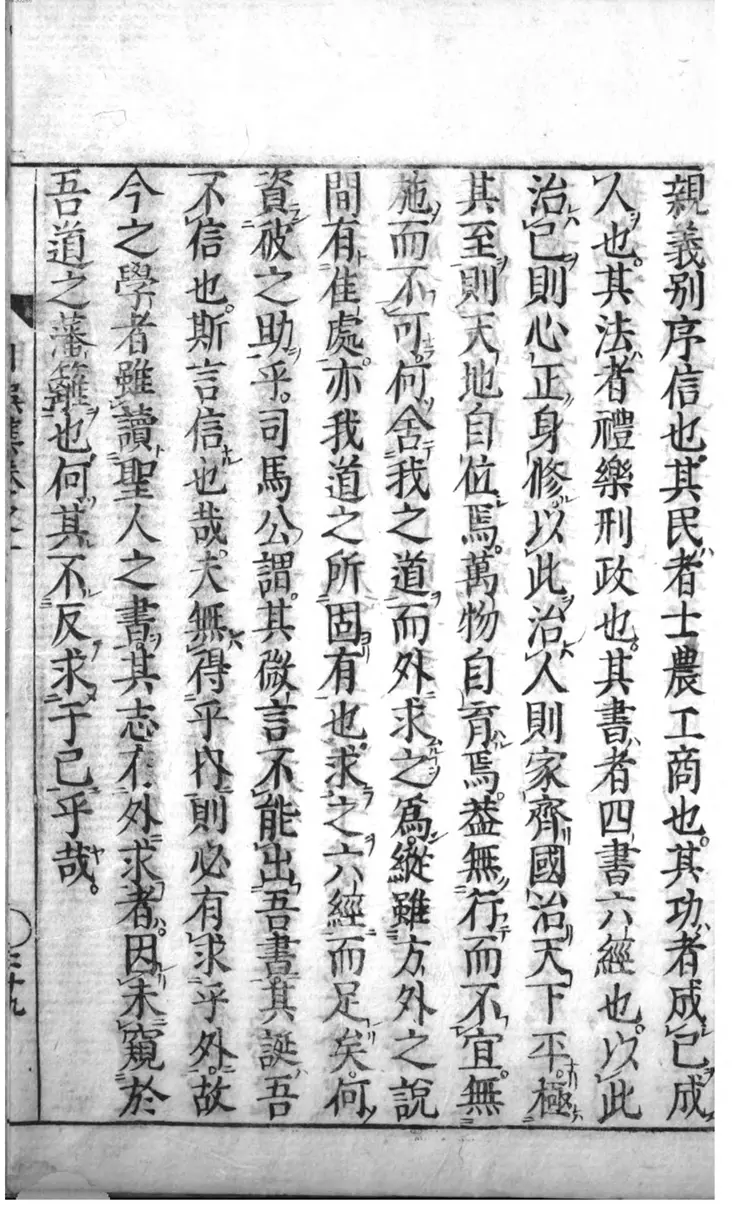 親義別序信也其民者士農工商也其功者成己成
人也其法者禮樂刑政也其書者四書六經也以此
治己則心正身修以此治人則家齊國治天下平極
其至則天地自位焉萬物自育焉蓋無行而不宜無
施而不可何舍我之道而外求之爲縱雖方外之說
間有佳處亦我道之所固有也求之六經而足矣何
資彼之助乎司馬公謂其微言不能出吾書其誕吾
不信也斯言信也哉夫無得乎内則必有求乎外故
今之學者雖讀聖人之書其志有外求者因未窺於
吾道之藩籬也何其不反求于己乎哉